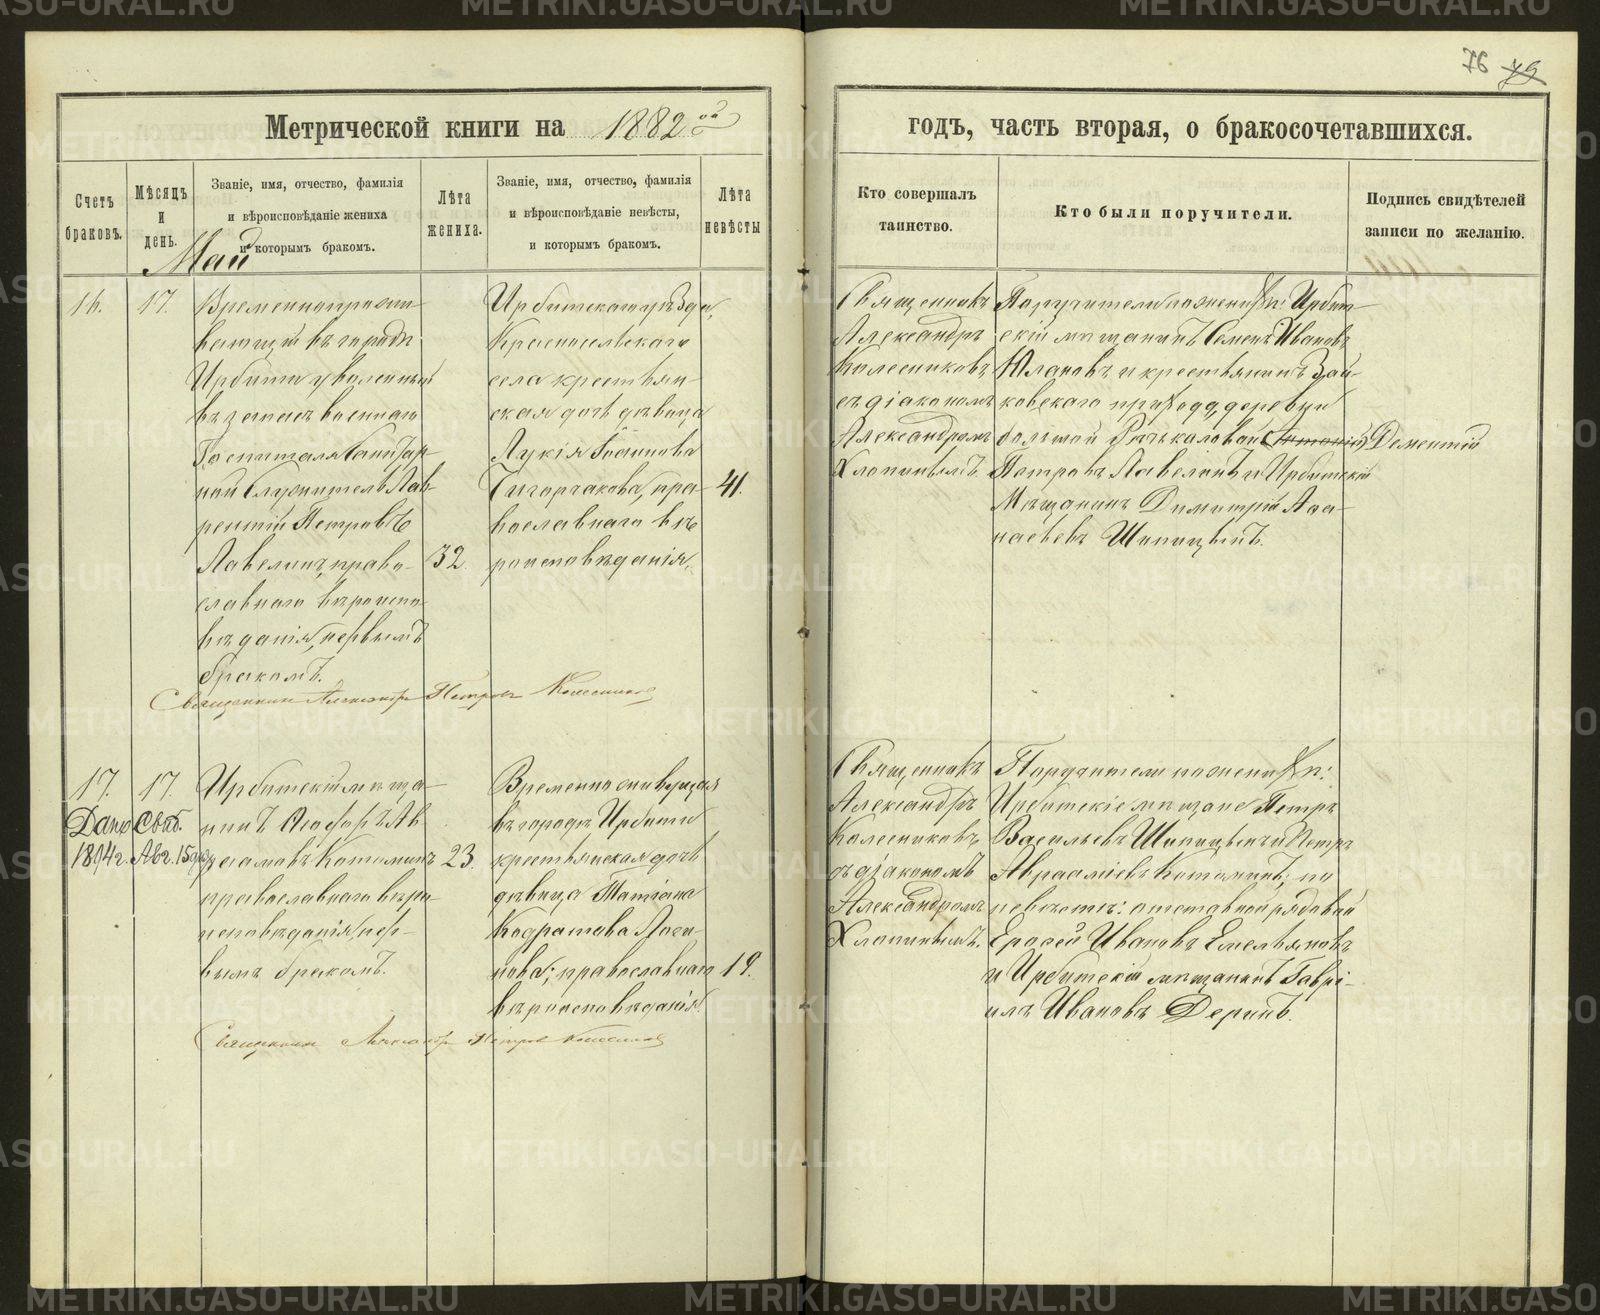 76 79
Метрической книги на 1882ой
годъ, часть вторая, о бракосочетавшихся.
Счетъ браковъ.
Мѣсяцъ и день.
Званіе, имя, отчество, фамилія и вѣроисповѣданіе жениха и которымъ бракомъ.
Лѣта жениха.
Званіе, имя, отчество, фамилія и вѣроисповѣданіе невѣсты, и которымъ бракомъ.
Лѣта невѣсты
Кто совершалъ таинство.
Кто были поручители.
Подпись свидѣтелей записи по желанію.
Май
16.
17.
Временнопрожи-
вающій въ городѣ
Ирбити уволенный
въ запасъ военнаго
Госпиталя Санитар-
ной Служитель Лав-
рентій Петровъ
Павелинъ, право-
славнаго вѣроиспо-
вѣданія, первымъ
бракомъ.
32.
Ирбитскаго уѣзда,
Красносельскаго
села крестьян-
ская дочь дѣвица
Лукія Іоаннова
православнаго вѣ-
роисповѣданія,
41.
Священникъ
Александръ
Колесниковъ
съ діакономъ
Александромъ
Хлопинымъ.
Поручители по женихѣ: Ирбит-
скій мѣщанинъ Семенъ Ивановъ
Юлановъ и крестьянинъ Зай-
ковскаго прихода, деревни
большой Речкаловой Дементій
Петровъ Павелинъ и Ирбитскій
Мѣщанинъ Димитрій Аѳа-
насьевъ Шипицынъ.
Священникъ Александръ Петровъ Колесниковъ
17.
17.
Дано Свид.
1894 г. Авг. 15 дня
Ирбитскій мѣща-
нинъ Ѳеодоръ Ав-
раамовъ Котоминъ
православнаго вѣро-
исповѣданія, пер-
вымъ бракомъ.
23.
Временно живущая
въ городѣ Ирбити
крестьянская дочь
дѣвица Татіана
Кодратова Логи-
нова; православнаго
вѣроисповѣданія
19.
Священникъ
Александръ
Колесниковъ,
съ діакономъ
Александромъ
Хлопинымъ.
Поручители по женихѣ:
Ирбитскіе мѣщане Петръ
Васильевъ Шипицынъ и Петръ
Авраамiевъ Котоминъ; по
невѣстѣ: отставной рядовой
Ерофей Ивановъ Емельяновъ
и Ирбитскій мѣщанинъ Гаврі-
илъ Ивановъ Деринъ.
Священникъ Александръ Петровъ Колесниковъ
METRIKI.GASO-URAL.RU